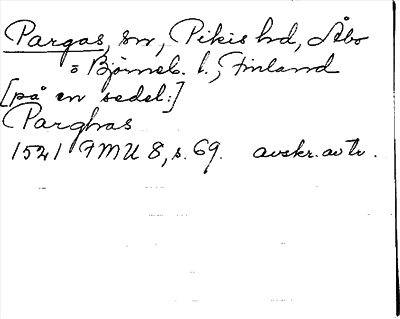 Pargas, sn, Pikis hd, Åbo
o Bjørneb. l., Finland
[på en sedel:]
Parghas
1521 FMU 8, s. 69. avskr. av tr.